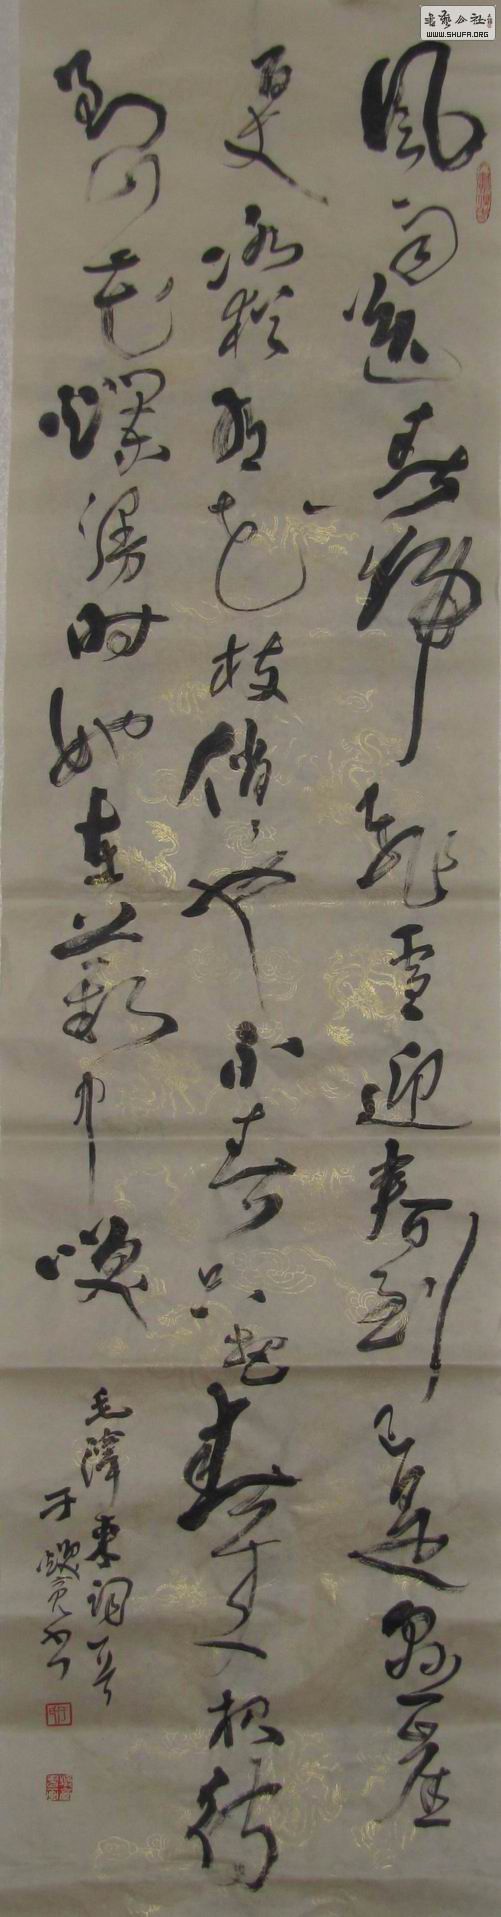 書藝公社
WWW.SHUFA.ORG
風雨送春歸飛雪迎春到已是懸崖
百丈冰猶有花枝俏俏也不爭春只把春來報待
到山花爛漫时她在叢中笑
毛澤東詞一首
于
书